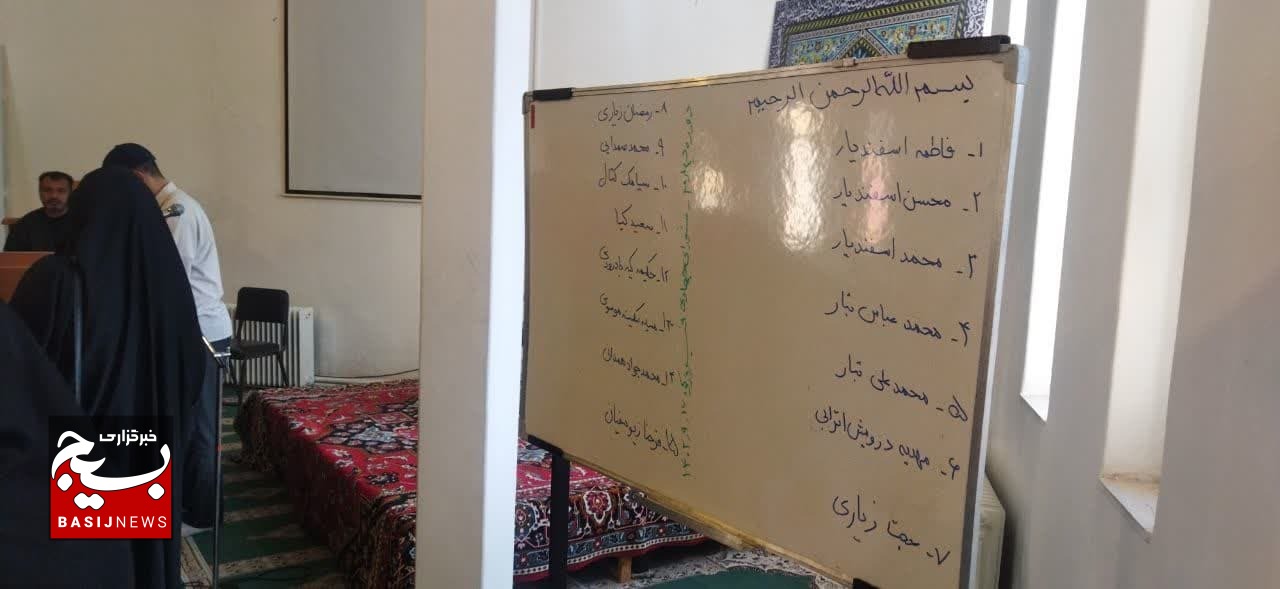 بسم الله الرحمن الرحیم
۱- فاطمه اسفندیار
۲- محسن اسفندیار
۳- محمد اسفندیار
۴- محمد عباس تبار
۵- محمد علی تبار
۶- مهدیه درویش اترابی
۷- زیاری
۸- رمضان زیاری
۹- محمد صمدایی
۱۰- سیامک کتال
۱۱- سعید کیا
۱۲- حکیمه
۱۳- سیده سکینه موسوی
۱۴- محمد جواد همدان
۱۵-
خبرگزاری
بسیج
BASIJNEWS